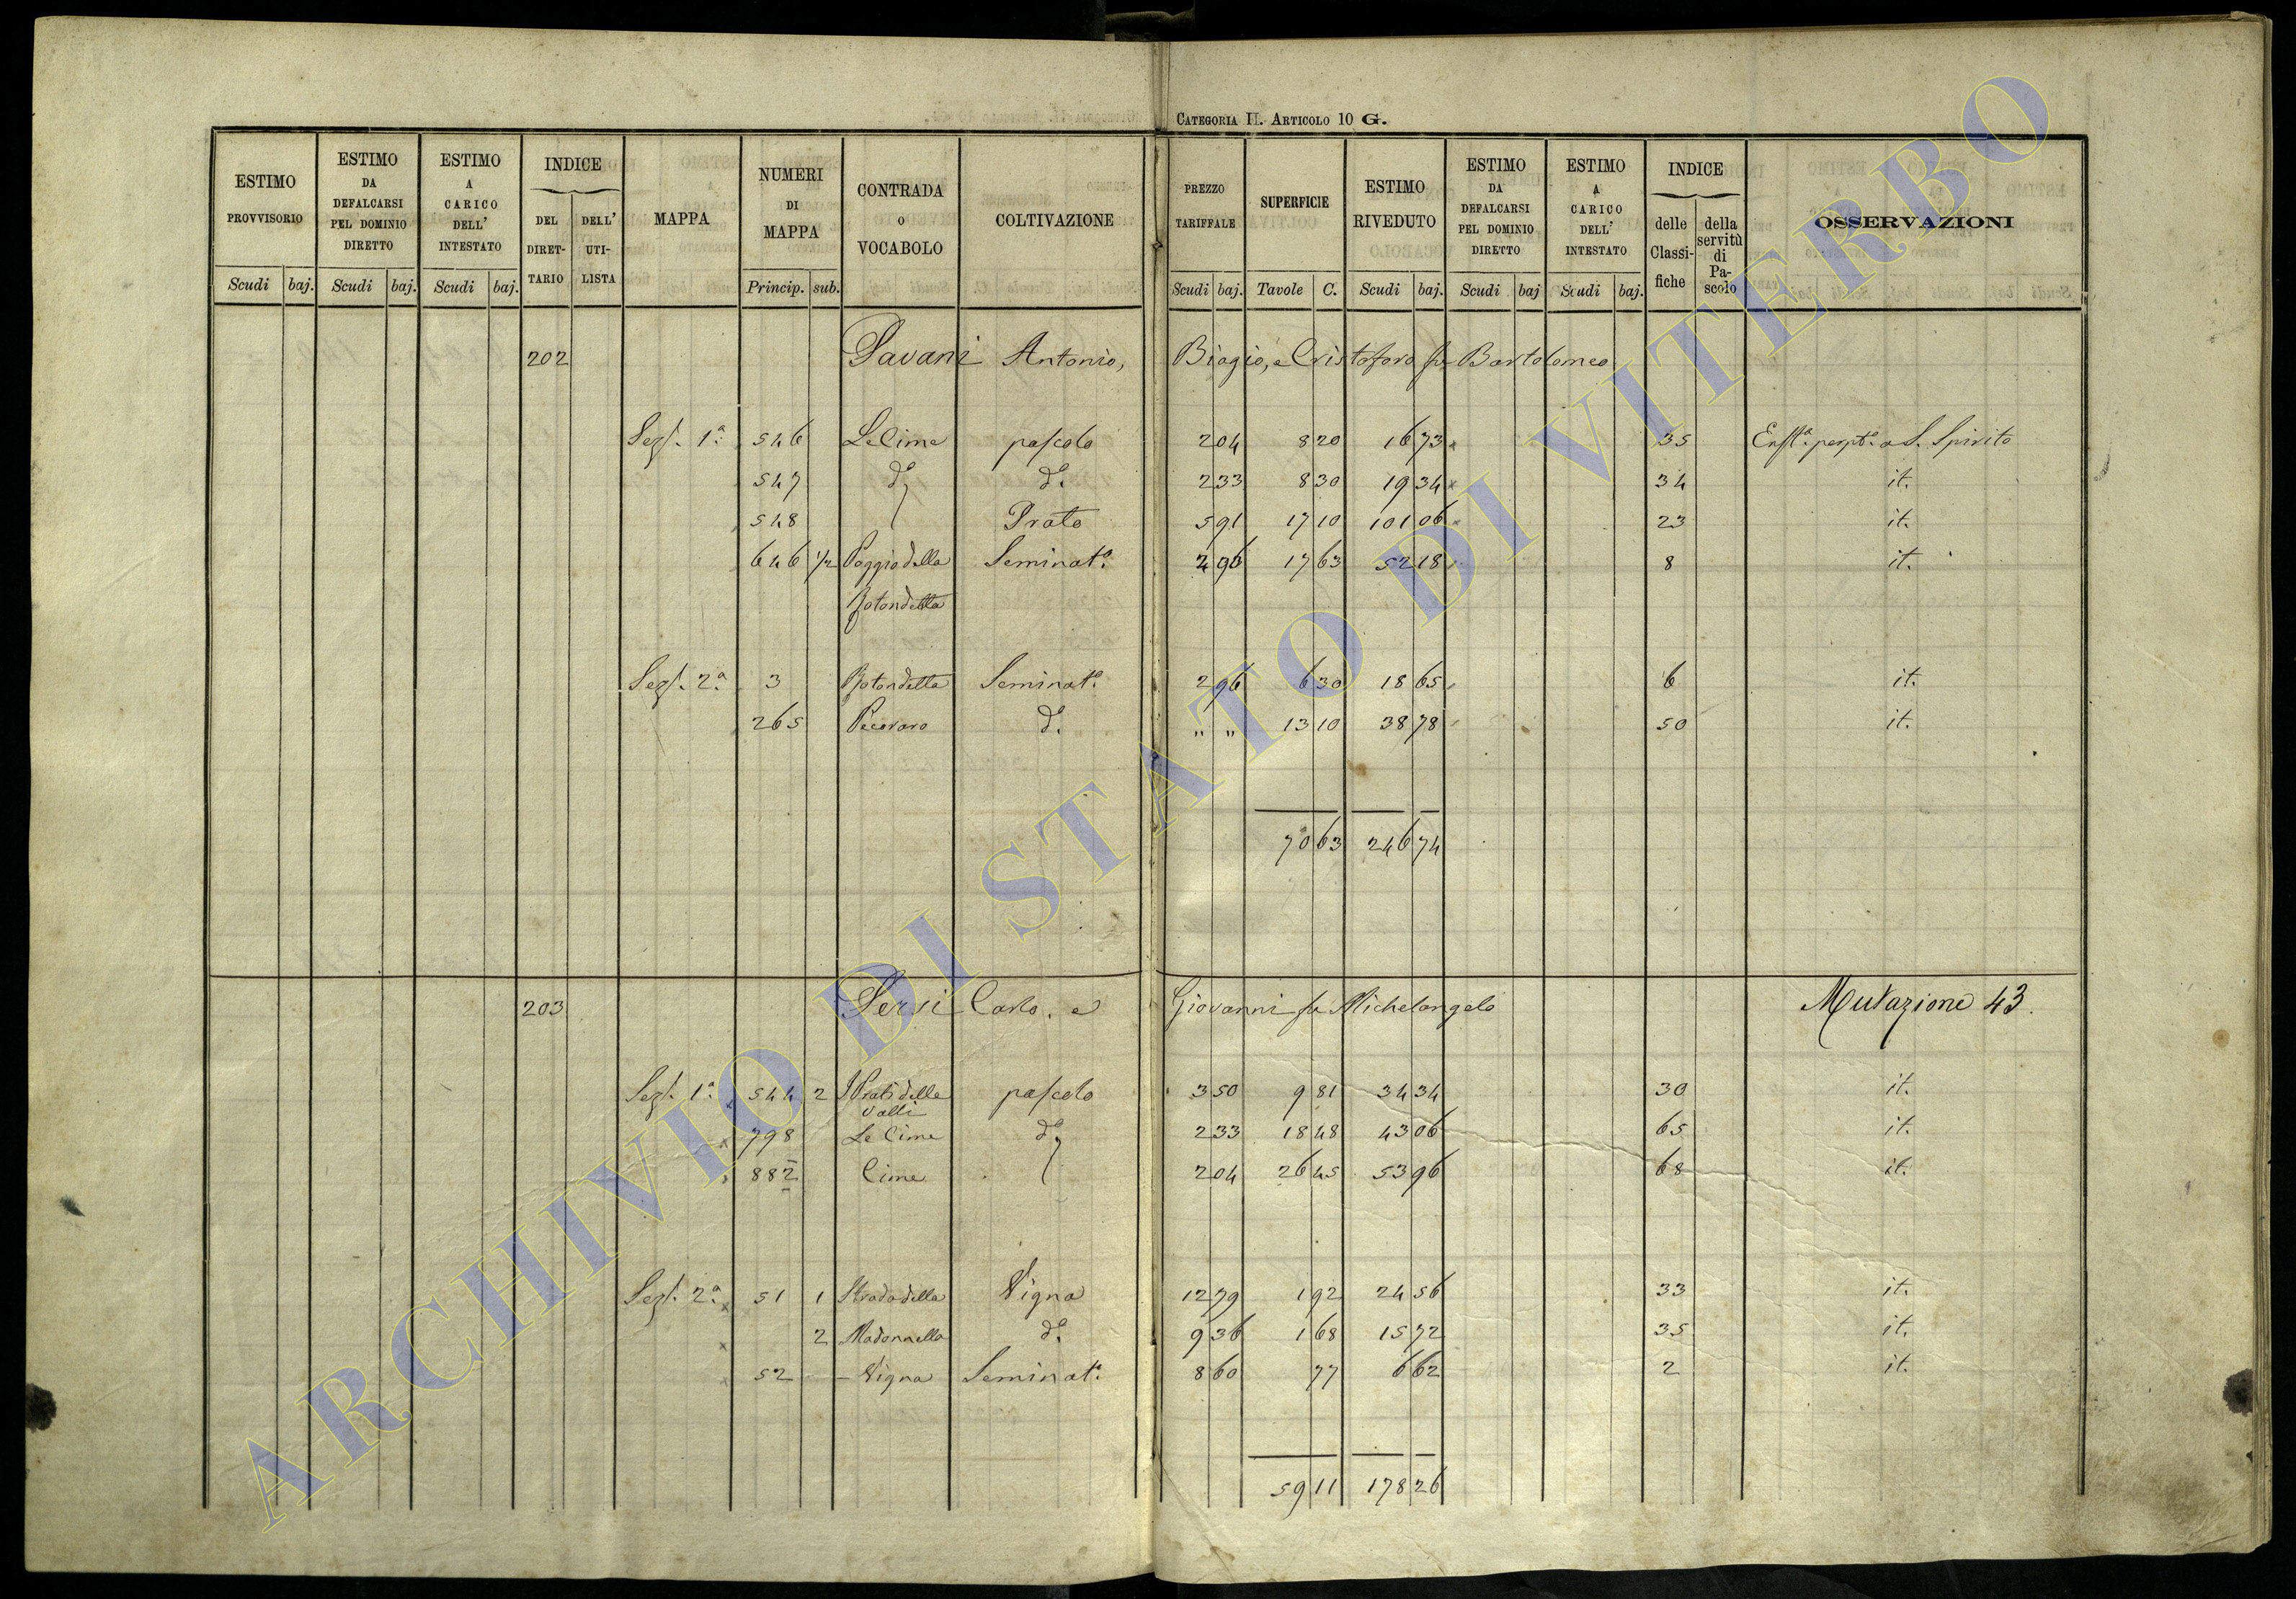 CATEGORIA II. ARTICOLO 10 G.
ESTIMO PROVVISORIO Scudi baj.
ESTIMO DA DEFALCARSI PEL DOMINIO DIRETTO Scudi baj.
ESTIMO A CARICO DELL' INTESTATO Scudi baj.
INDICE DEL DIRET-TARIO DELL' UTI-LISTA
MAPPA
NUMERI DI MAPPA Princip. sub.
CONTRADA o VOCABOLO
COLTIVAZIONE
PREZZO TARIFFALE Scudi baj.
SUPERFICIE Tavole C.
ESTIMO RIVEDUTO Scudi baj.
ESTIMO DA DEFALCARSI PEL DOMINIO DIRETTO Scudi baj
ESTIMO A CARICO DELL' INTESTATO Scudi baj.
INDICE delle Classi-fiche della servitù di Pa-scolo
OSSERVAZIONI
202 Pavani Antonio, Biagio, e Cristoforo fu Bartolomeo
Sez. 1ª 546 Le Cime pascolo 2 04 8 20 16 73 35 Enfta. perpta. a S. Spirito
547 do. do. 2 33 8 30 19 34 34 it.
548 Prato 5 91 17 10 101 06 23 it.
646 1/2 Poggio della Seminato. 2 96 17 63 52 18 8 it.
Rotondella
Sez. 2ª 3 Rotondella Seminato. 2 96 6 30 18 65 6 it.
265 Pecoraro do. " " 13 10 38 78 50 it.
70 63 246 74
203 Persi Carlo, e Giovanni fu Michelangelo Mutazione 43.
Sez. 1ª 544 2 I Prati delle pascolo 3 50 9 81 34 34 30 it.
Valli
798 Le Cime do. 2 33 18 48 43 06 65 it.
882 Cime 2 04 26 45 53 96 68 it.
Sez. 2ª 51 1 Strada della Vigna 12 79 1 92 24 56 33 it.
2 Madonnella do. 9 36 1 68 15 72 35 it.
52 - Vigna Seminato. 8 60 77 6 62 2 it.
59 11 178 26
ARCHIVIO DI STATO DI VITERBO